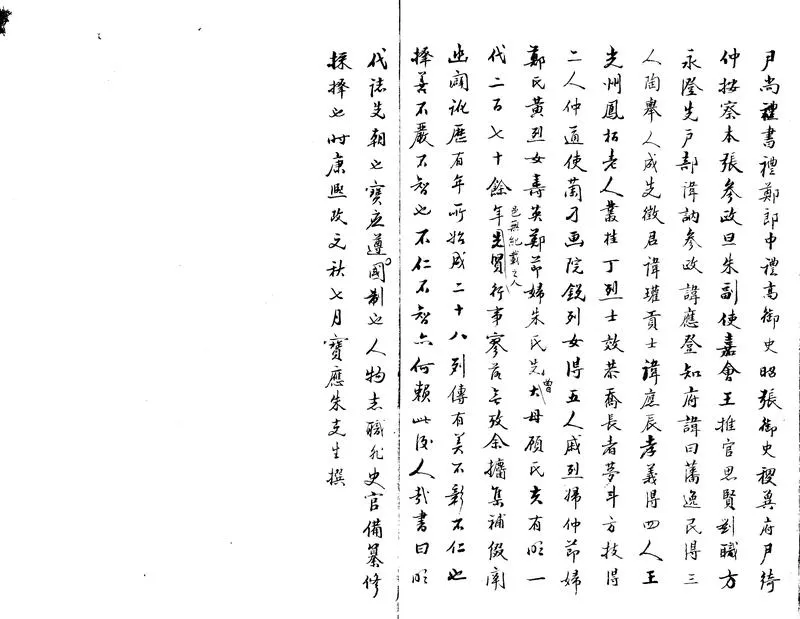 尹尚禮書禮鄭郎中禮高御史昭張御史稷冀府尹綺
仲按察本張參政旦朱副使嘉會王推官思賢劉職方
永澄先戶部諱訥參政諱應登知府諱曰藩逸民得三
人陶舉人成先徵君諱瓘貢士諱應辰孝義得四人王
光州鳳柘老人叢桂丁烈士效恭喬長者夢斗方技得
二人仲通使蘭刁画院銳列女得五人戚烈婦仲節婦
鄭氏黃烈女壽英鄭節婦朱氏先曾大母顧氏夫有明一
代二百七十餘年邑無紀載之人先賢行事寥落無攷余攟集補綴闡
幽訂訛歷有年所始成二十八列傳有美不彰不仁也
擇善不嚴不智也不仁不智亦何賴此後人哉書曰明
代誌先朝也寶應遵國制也人物志職非史官備纂修
採擇也時康熙改元秋七月寶應朱克生撰